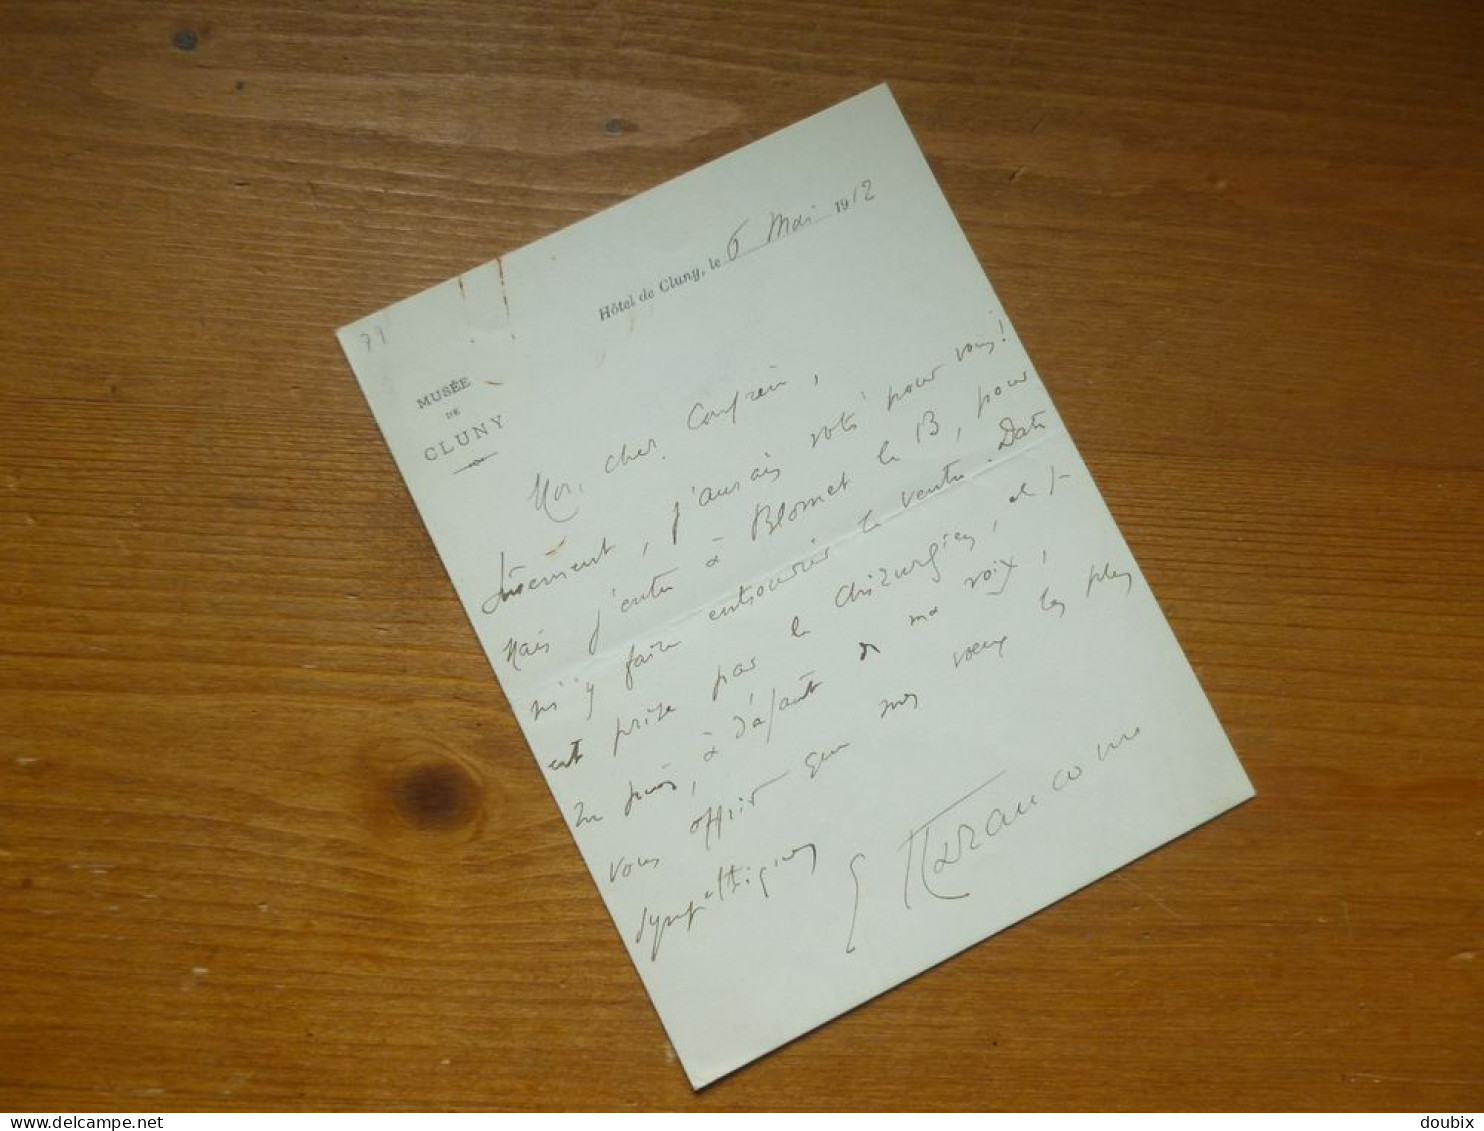 71
Hôtel de Cluny, le 6 Mai 1912
MUSÉE
DE
CLUNY
Mon cher Confrère,
Sûrement, j'aurais voté pour vous!
Mais j'entre à Blomet le 13, pour
m'y faire entrouvrir le ventre. Date
est prise par le chirurgien, et je
ne puis, à défaut de ma voix,
vous offrir que mes vœux les plus
sympathiques
E Haraucourt
delcampe.net
doubix